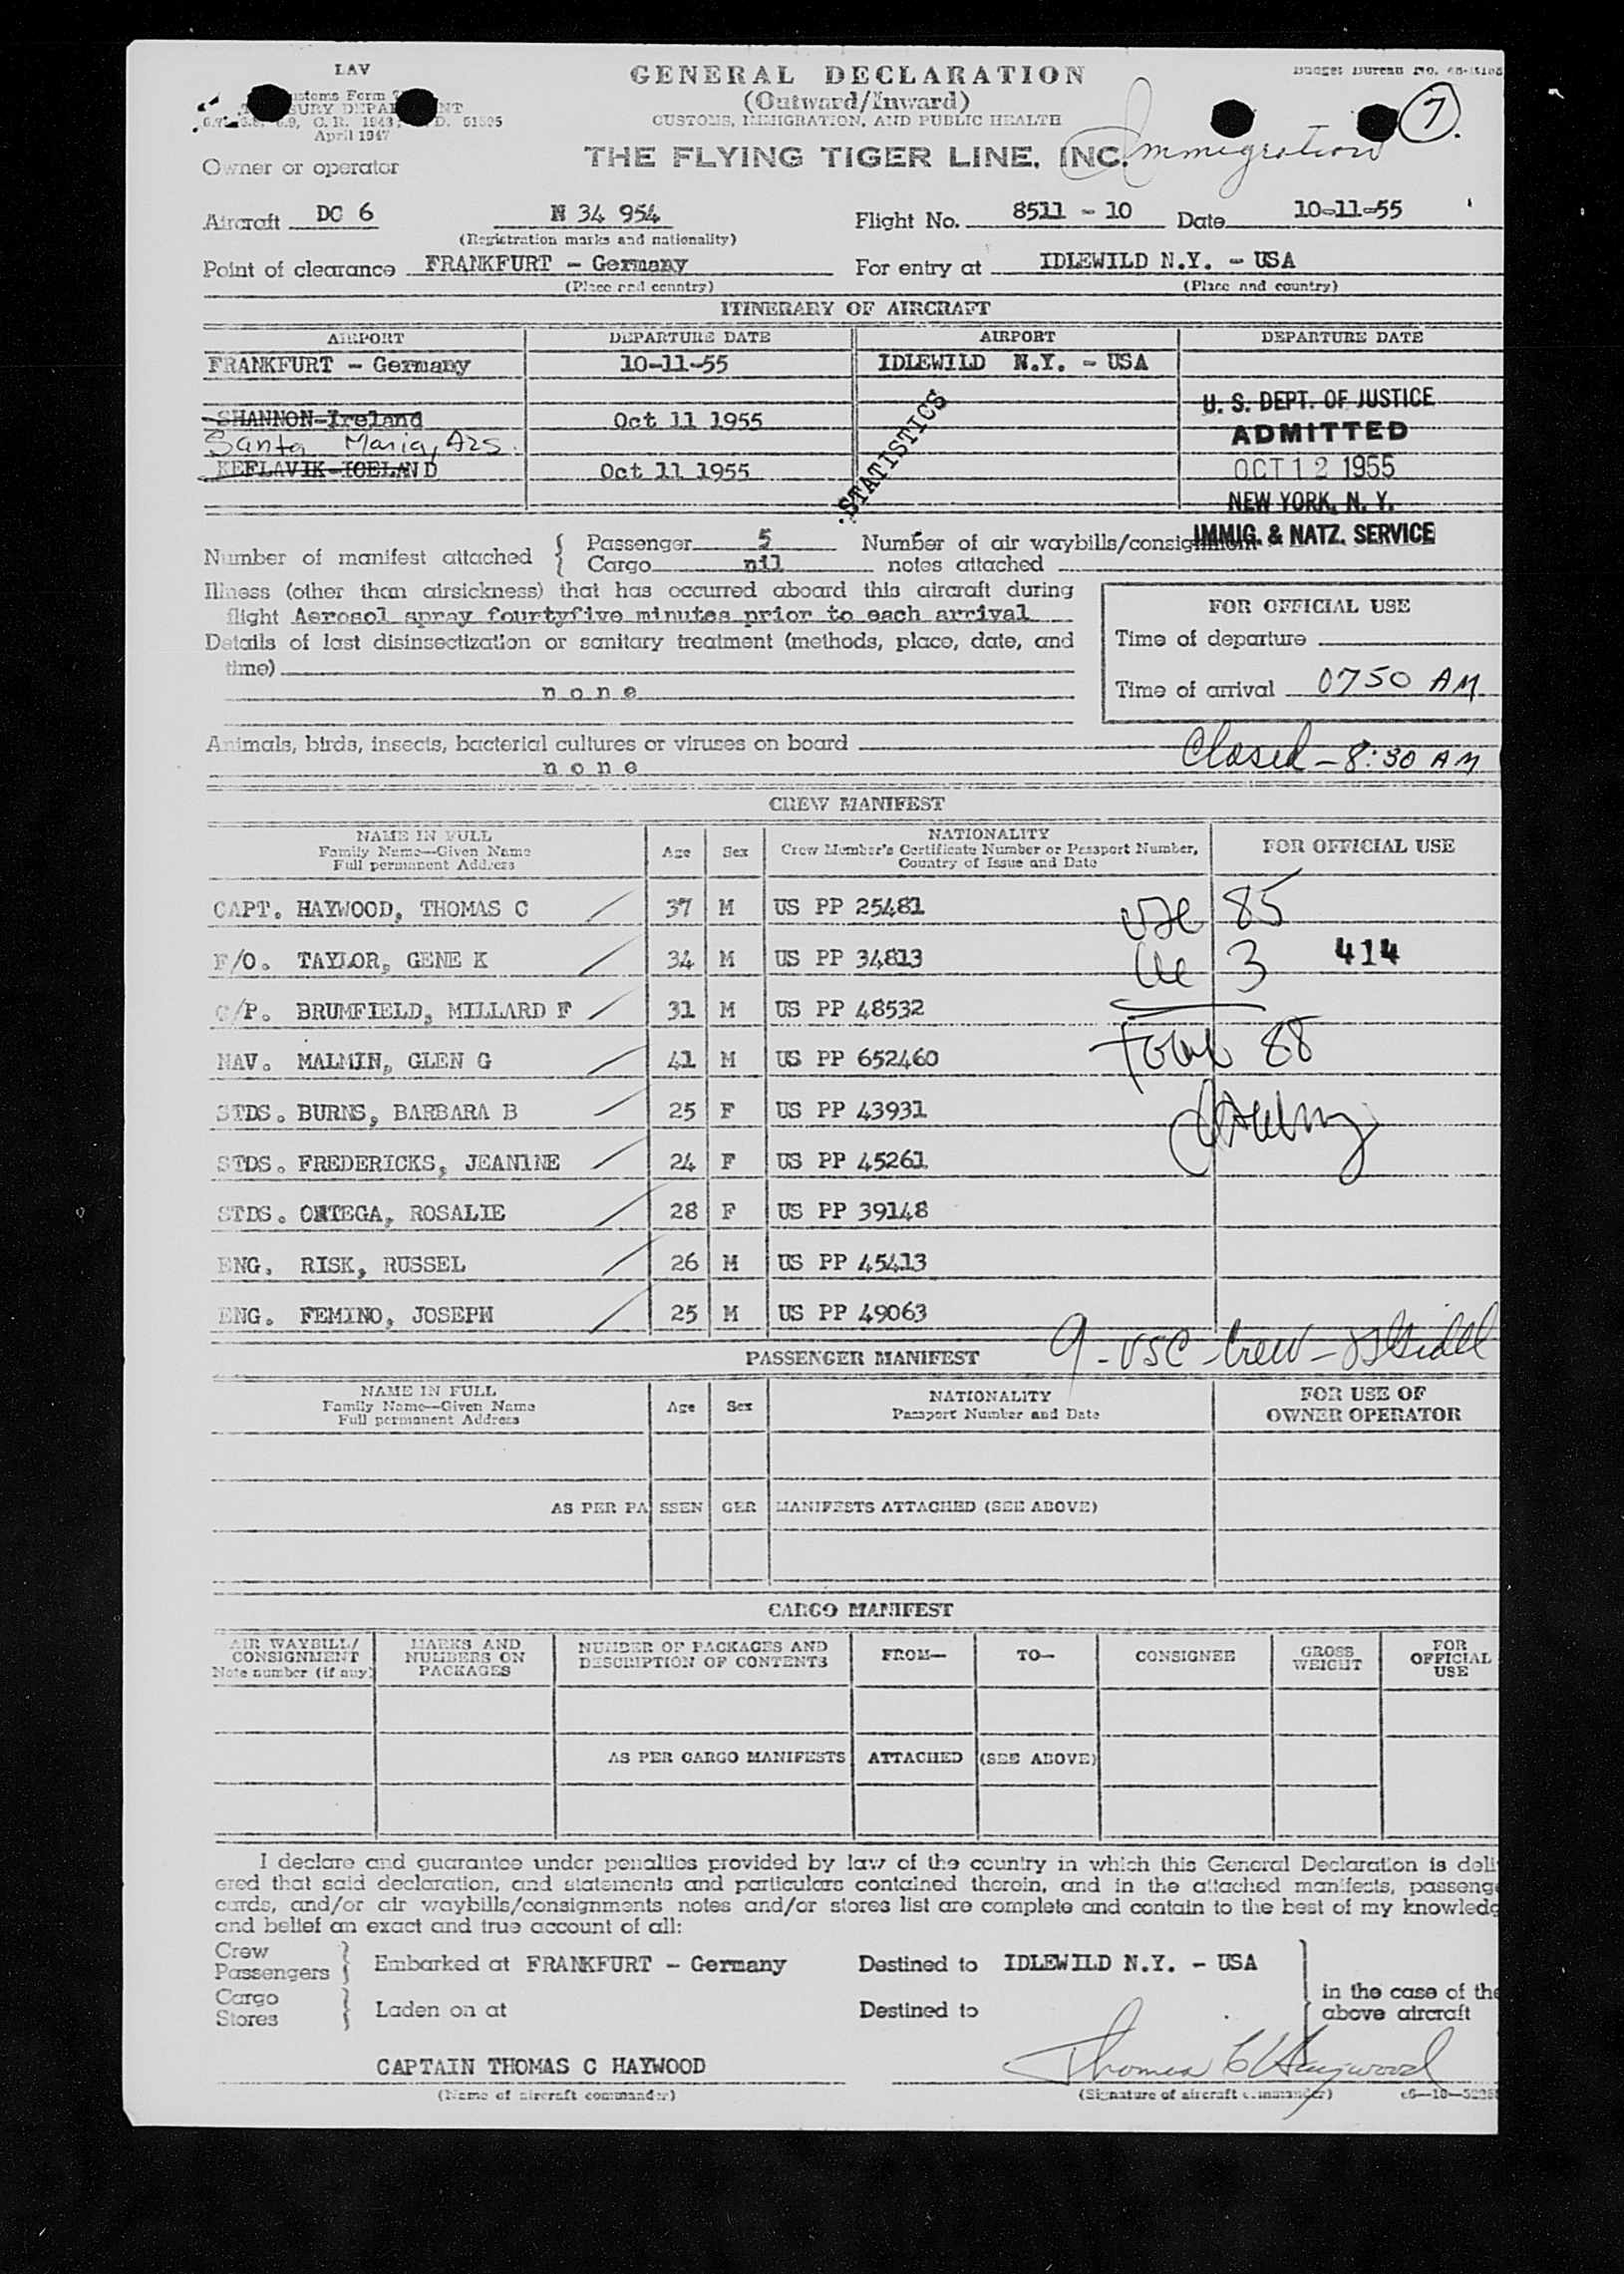 LAV
GENERAL DECLARATION
(Outward/Inward)
CUSTOMS, IMMIGRATION, AND PUBLIC HEALTH
April 1947
7.
Immigration
THE FLYING TIGER LINE, INC.
Owner or operator
Aircraft DC 6 N 34 954 Flight No. 8511 - 10 Date 10-11-55
(Registration marks and nationality)
Point of clearance FRANKFURT - Germany For entry at IDLEWILD N.Y. - USA
(Place and country) (Place and country)
ITINERARY OF AIRCRAFT
AIRPORT DEPARTURE DATE AIRPORT DEPARTURE DATE
FRANKFURT - Germany 10-11-55 IDLEWILD N.Y. - USA
SHANNON-Ireland Oct 11 1955
Santa Maria, Azs.
KEFLAVIK-ICELAND Oct 11 1955
STATISTICS
U. S. DEPT. OF JUSTICE
ADMITTED
OCT 12 1955
NEW YORK, N. Y.
IMMIG. & NATZ. SERVICE
Number of manifest attached { Passenger 5 Number of air waybills/consignment
Cargo nil notes attached
Illness (other than airsickness) that has occurred aboard this aircraft during
flight Aerosol spray fourtyfive minutes prior to each arrival
Details of last disinsectization or sanitary treatment (methods, place, date, and
time)
none
FOR OFFICIAL USE
Time of departure
Time of arrival 0750 AM
Animals, birds, insects, bacterial cultures or viruses on board
none
Closed - 8:30 AM
CREW MANIFEST
NAME IN FULL
Family Name—Given Name
Full permanent Address
Age Sex
NATIONALITY
Crew Member's Certificate Number or Passport Number,
Country of Issue and Date
FOR OFFICIAL USE
CAPT. HAYWOOD, THOMAS C 37 M US PP 25481
F/O. TAYLOR, GENE K 34 M US PP 34813
C/P. BRUMFIELD, MILLARD F 31 M US PP 48532
NAV. MALMIN, GLEN G 41 M US PP 652460
STDS. BURNS, BARBARA B 25 F US PP 43931
STDS. FREDERICKS, JEANINE 24 F US PP 45261
STDS. ORTEGA, ROSALIE 28 F US PP 39148
ENG. RISK, RUSSEL 26 M US PP 45413
ENG. FEMINO, JOSEPH 25 M US PP 49063
85
3 414
Total 88
9 - USC - Crew -
PASSENGER MANIFEST
NAME IN FULL
Family Name—Given Name
Full permanent Address
Age Sex
NATIONALITY
Passport Number and Date
FOR USE OF
OWNER OPERATOR
AS PER PASSENGER MANIFESTS ATTACHED (SEE ABOVE)
CARGO MANIFEST
AIR WAYBILL/
CONSIGNMENT
Note number (if any)
MARKS AND
NUMBERS ON
PACKAGES
NUMBER OF PACKAGES AND
DESCRIPTION OF CONTENTS
FROM— TO— CONSIGNEE
GROSS
WEIGHT
FOR
OFFICIAL
USE
AS PER CARGO MANIFESTS ATTACHED (SEE ABOVE)
I declare and guarantee under penalties provided by law of the country in which this General Declaration is deli
ered that said declaration, and statements and particulars contained therein, and in the attached manifests, passeng
cards, and/or air waybills/consignments notes and/or stores list are complete and contain to the best of my knowledg
and belief an exact and true account of all:
Crew
Passengers } Embarked at FRANKFURT - Germany Destined to IDLEWILD N.Y. - USA
Cargo
Stores } Laden on at Destined to
in the case of the
above aircraft
CAPTAIN THOMAS C HAYWOOD Thomas C Haywood
(Name of aircraft commander) (Signature of aircraft commander)